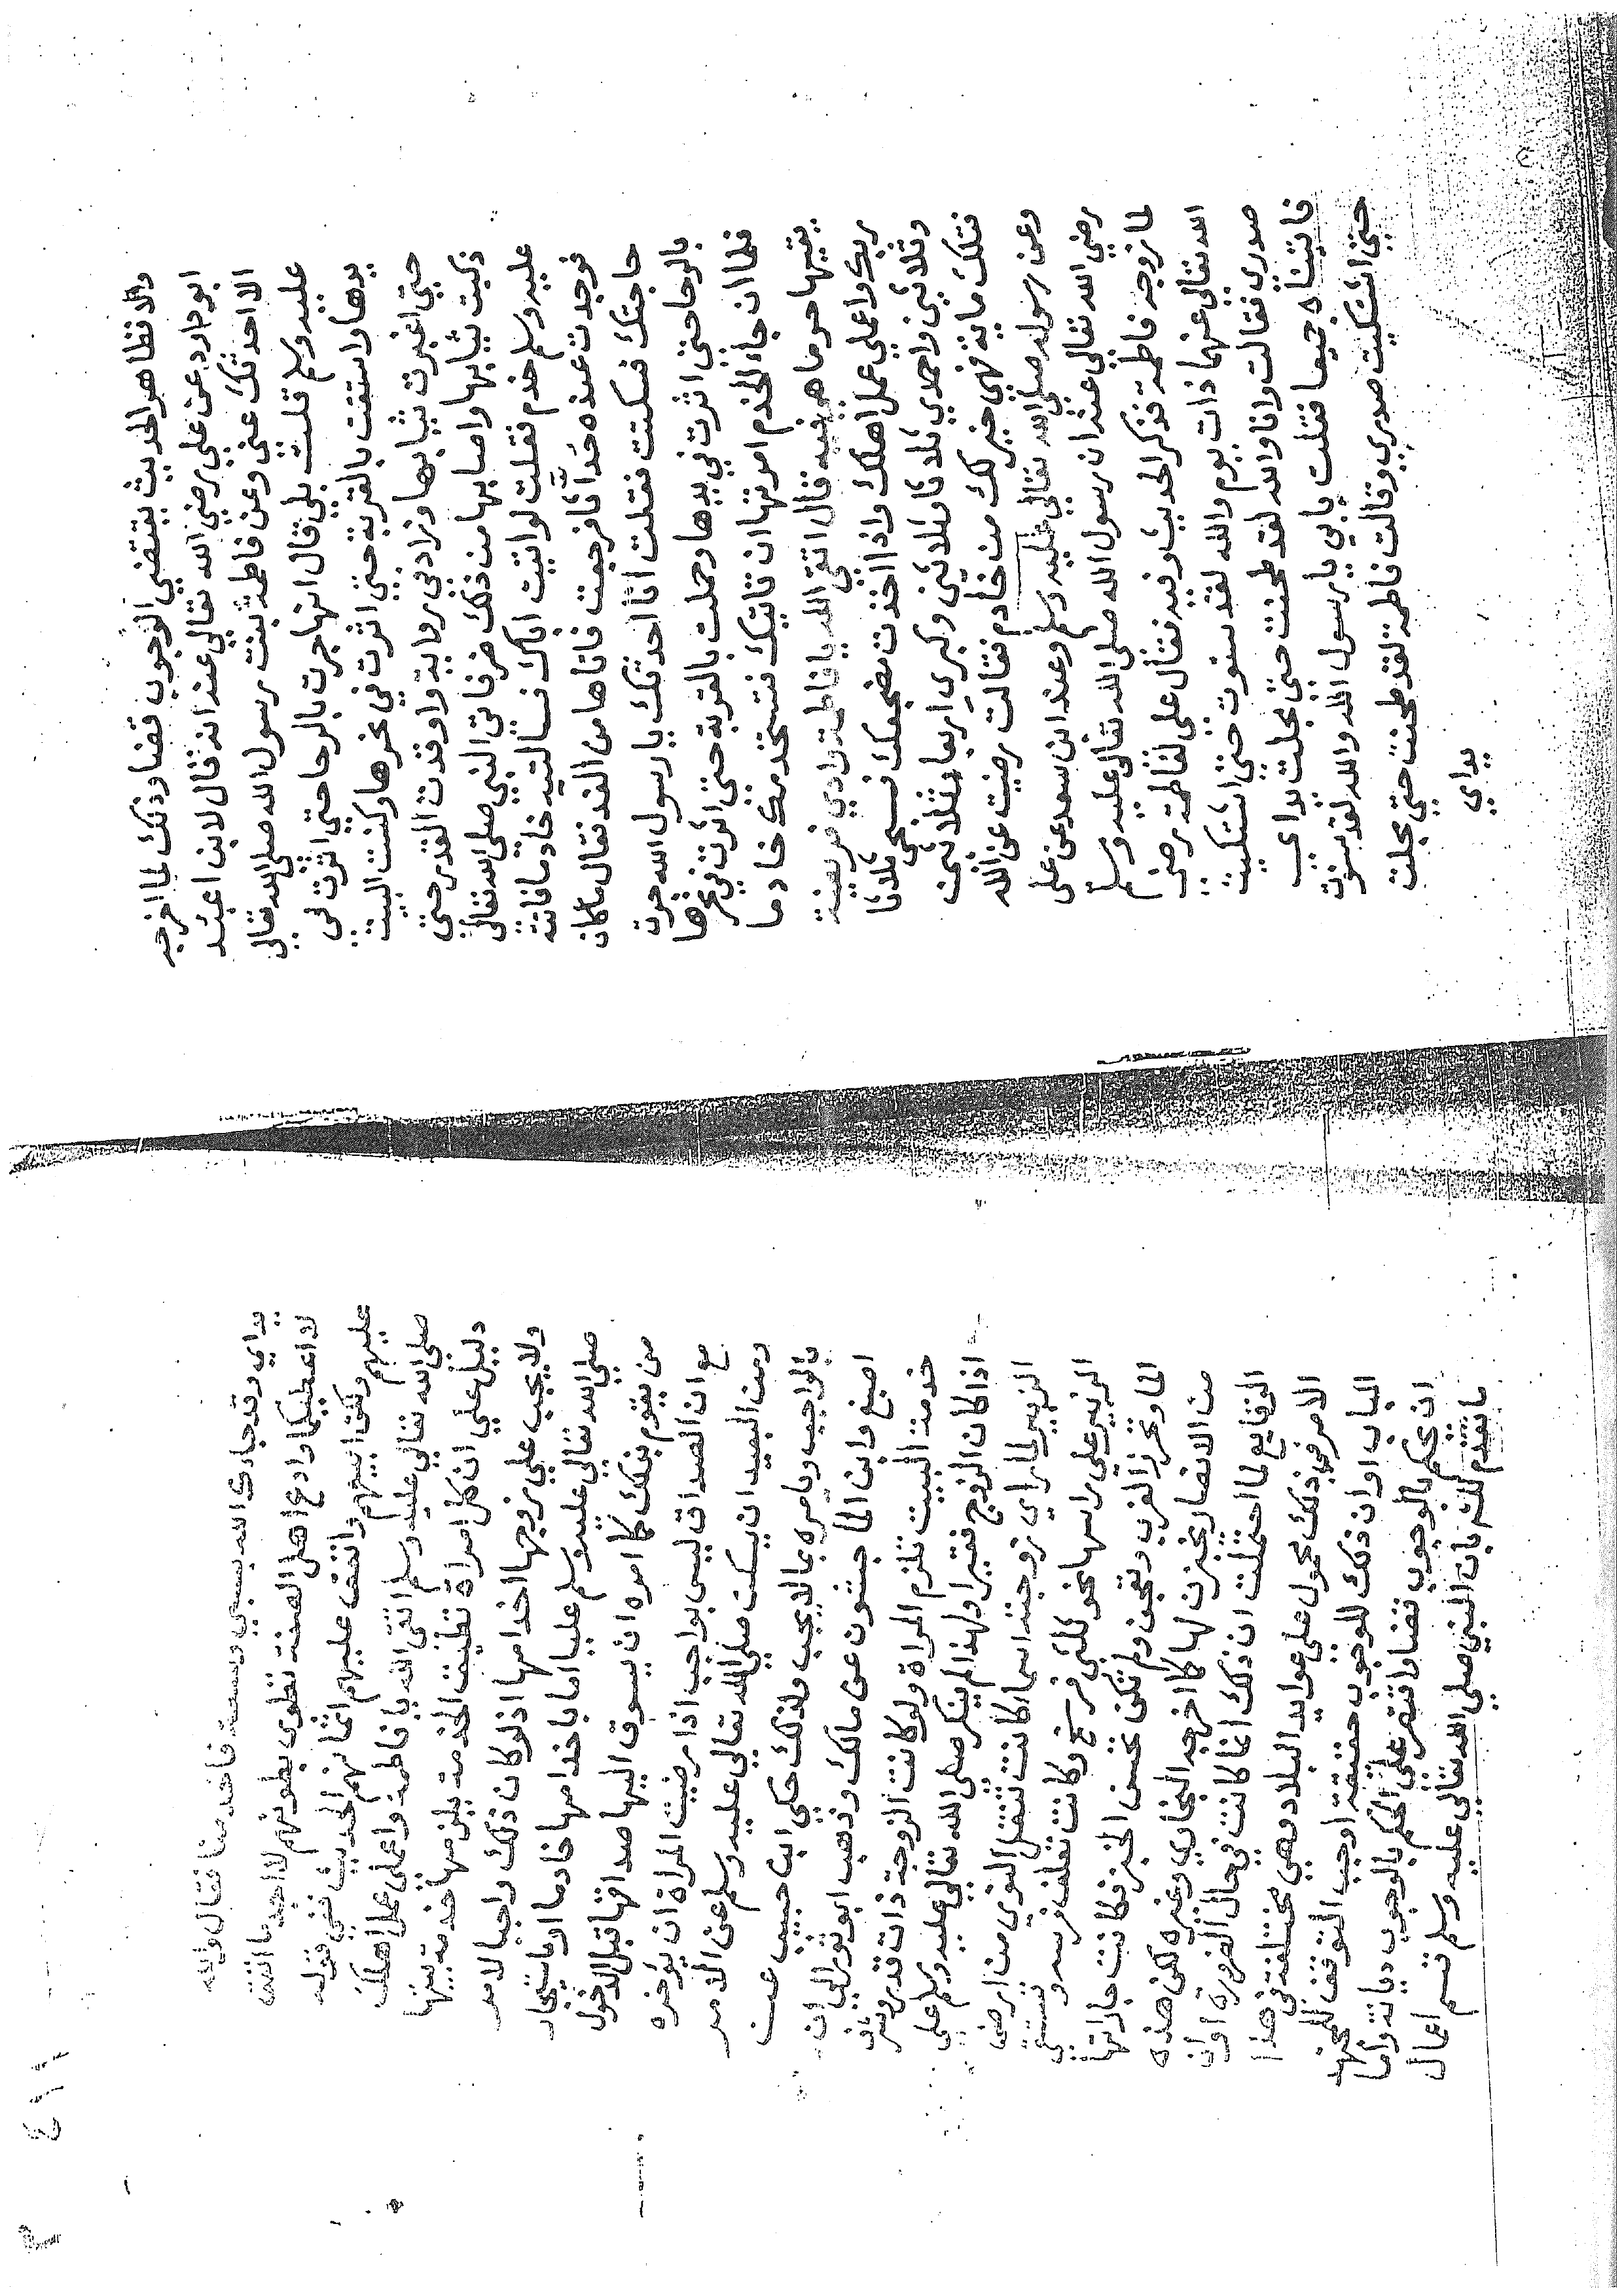 والا فظاهر الحديث يقتضي الوجوب قضا وذلك لما اخرجه
ابو داود عن علي رضي الله تعالى عنه انه قال لابن اعبد
الا احدثك عني وعن فاطمة بنت رسول الله صلى الله تعالى
عليه وسلم قلت بلي قال انها جرت بالرحا حتى اثرت في
يدها واستقت بالقربة حتى اثرت في نحرها وكنت البيت
حتى اغبرت ثيابها وزاد في رواية واوقدت القدر حتى
دكنت ثيابها واصابها من ذلك ضر فاتى النبي صلى الله تعالى
عليه وسلم خدم فقلت لو اتيت اباك فسالتيه خادما فاتته
فوجدت عنده حداثا فرجعت فاتاها من الغد فقال ما كان
حاجتك فسكتت فقلت انا احدثك يا رسول الله جرت
بالرحا حتى اثرت في يدها وحملت بالقربة حتى اثرت في نحرها
فلما ان جاء الخدم امرتها ان تاتيك فتستخدمك خادما
يقيها حر ما هي فيه قال اتقي الله يا فاطمة وادي فريضة
ربك واعملي عمل اهلك واذا اخذت مضجعك فسبحي ثلاثا
وثلاثين واحمدي ثلاثا وثلاثين وكبري اربعا وثلاثين
فتلك ماية فهي خير لك من خادم فقالت رضيت عن الله
وعن رسوله صلى الله تعالى عليه وسلم وعند ابن سعد عن علي
رضي الله تعالى عنه ان رسول الله صلى الله تعالى عليه وسلم
لما زوجه فاطمة فذكر الحديث وفيه فقال علي لفاطمة رضي
الله تعالى عنهما ذات يوم والله لقد سنوت حتى اشتكيت
صدري فقالت وانا والله لقد طحنت حتى مجلت يداي
فاتيناه جميعا فقلت يا بي يا رسول الله والله لقد سنوت
حتى اشتكيت صدري وقالت فاطمة لقد طحنت حتى مجلت
يداي
يداي وقد جاءك الله بسبي وسعة فاخدمنا فقال والله
لا اعطيكما وادع اهل الصفة تطوى بطونهم لا اجد ما انفق
عليهم ولكن ابيعهم وانفق عليهم اثمانهم الحديث ففي قوله
صلى الله تعالى عليه وسلم اتقى الله يا فاطمة واعملي عمل اهلك
دليل على ان كل امراة تطيق الخدمة يلزمها خدمة بيتها
ولا يجب على زوجها اخدامها اذ لو كان ذلك واجبا لامر
صلى الله تعالى عليه وسلم عليا اما باخدامها خادما او باستيجار
من يقوم بذلك كما امره ان يسوق اليها صداقها قبل الدخول
مع ان الصداق ليس بواجب اذا رضيت المراة ان يؤخره
ومن البعيد ان يسكت صلى الله تعالى عليه وسلم عن الامر
بالواجب ويامره بما لا يجب ولذلك حكي ابن حبيب عن
اصبغ وابن الماجشون عن مالك وذهب ابو ثور الى ان
خدمة البيت تلزم المراة ولو كانت الزوجة ذات قدر وشرف
اذا كان الزوج فقيرا ولهذا لم ينكر صلى الله تعالى عليه وسلم على
الزبير لما راي زوجته اسما كانت تنقل النوي من ارض
الزبير على راسها نحو ثلثي فرسخ وكانت تعلف فرسه وتستقي
الما وتخرز الغرب وتعجن ولم تكن تحسن الخبز فكانت جاراتها
من الانصار يخبزن لها كما اخرجه البخاري وغيره لكن هذه
الوقايع لما احتملت ان ذلك انما كانت في حال الضرورة او ان
الامر في ذلك محمول على عوايد البلاد وهي مختلفة في هذا
الباب او ان ذلك للوجوب حقيقة اوجب التوقف للمجتهد
ان يحكم بالوجوب قضا واقتصر على الحكم بالوجوب ديانة واما
ما تقدم لك بان النبي صلى الله تعالى عليه وسلم قسم اعمال